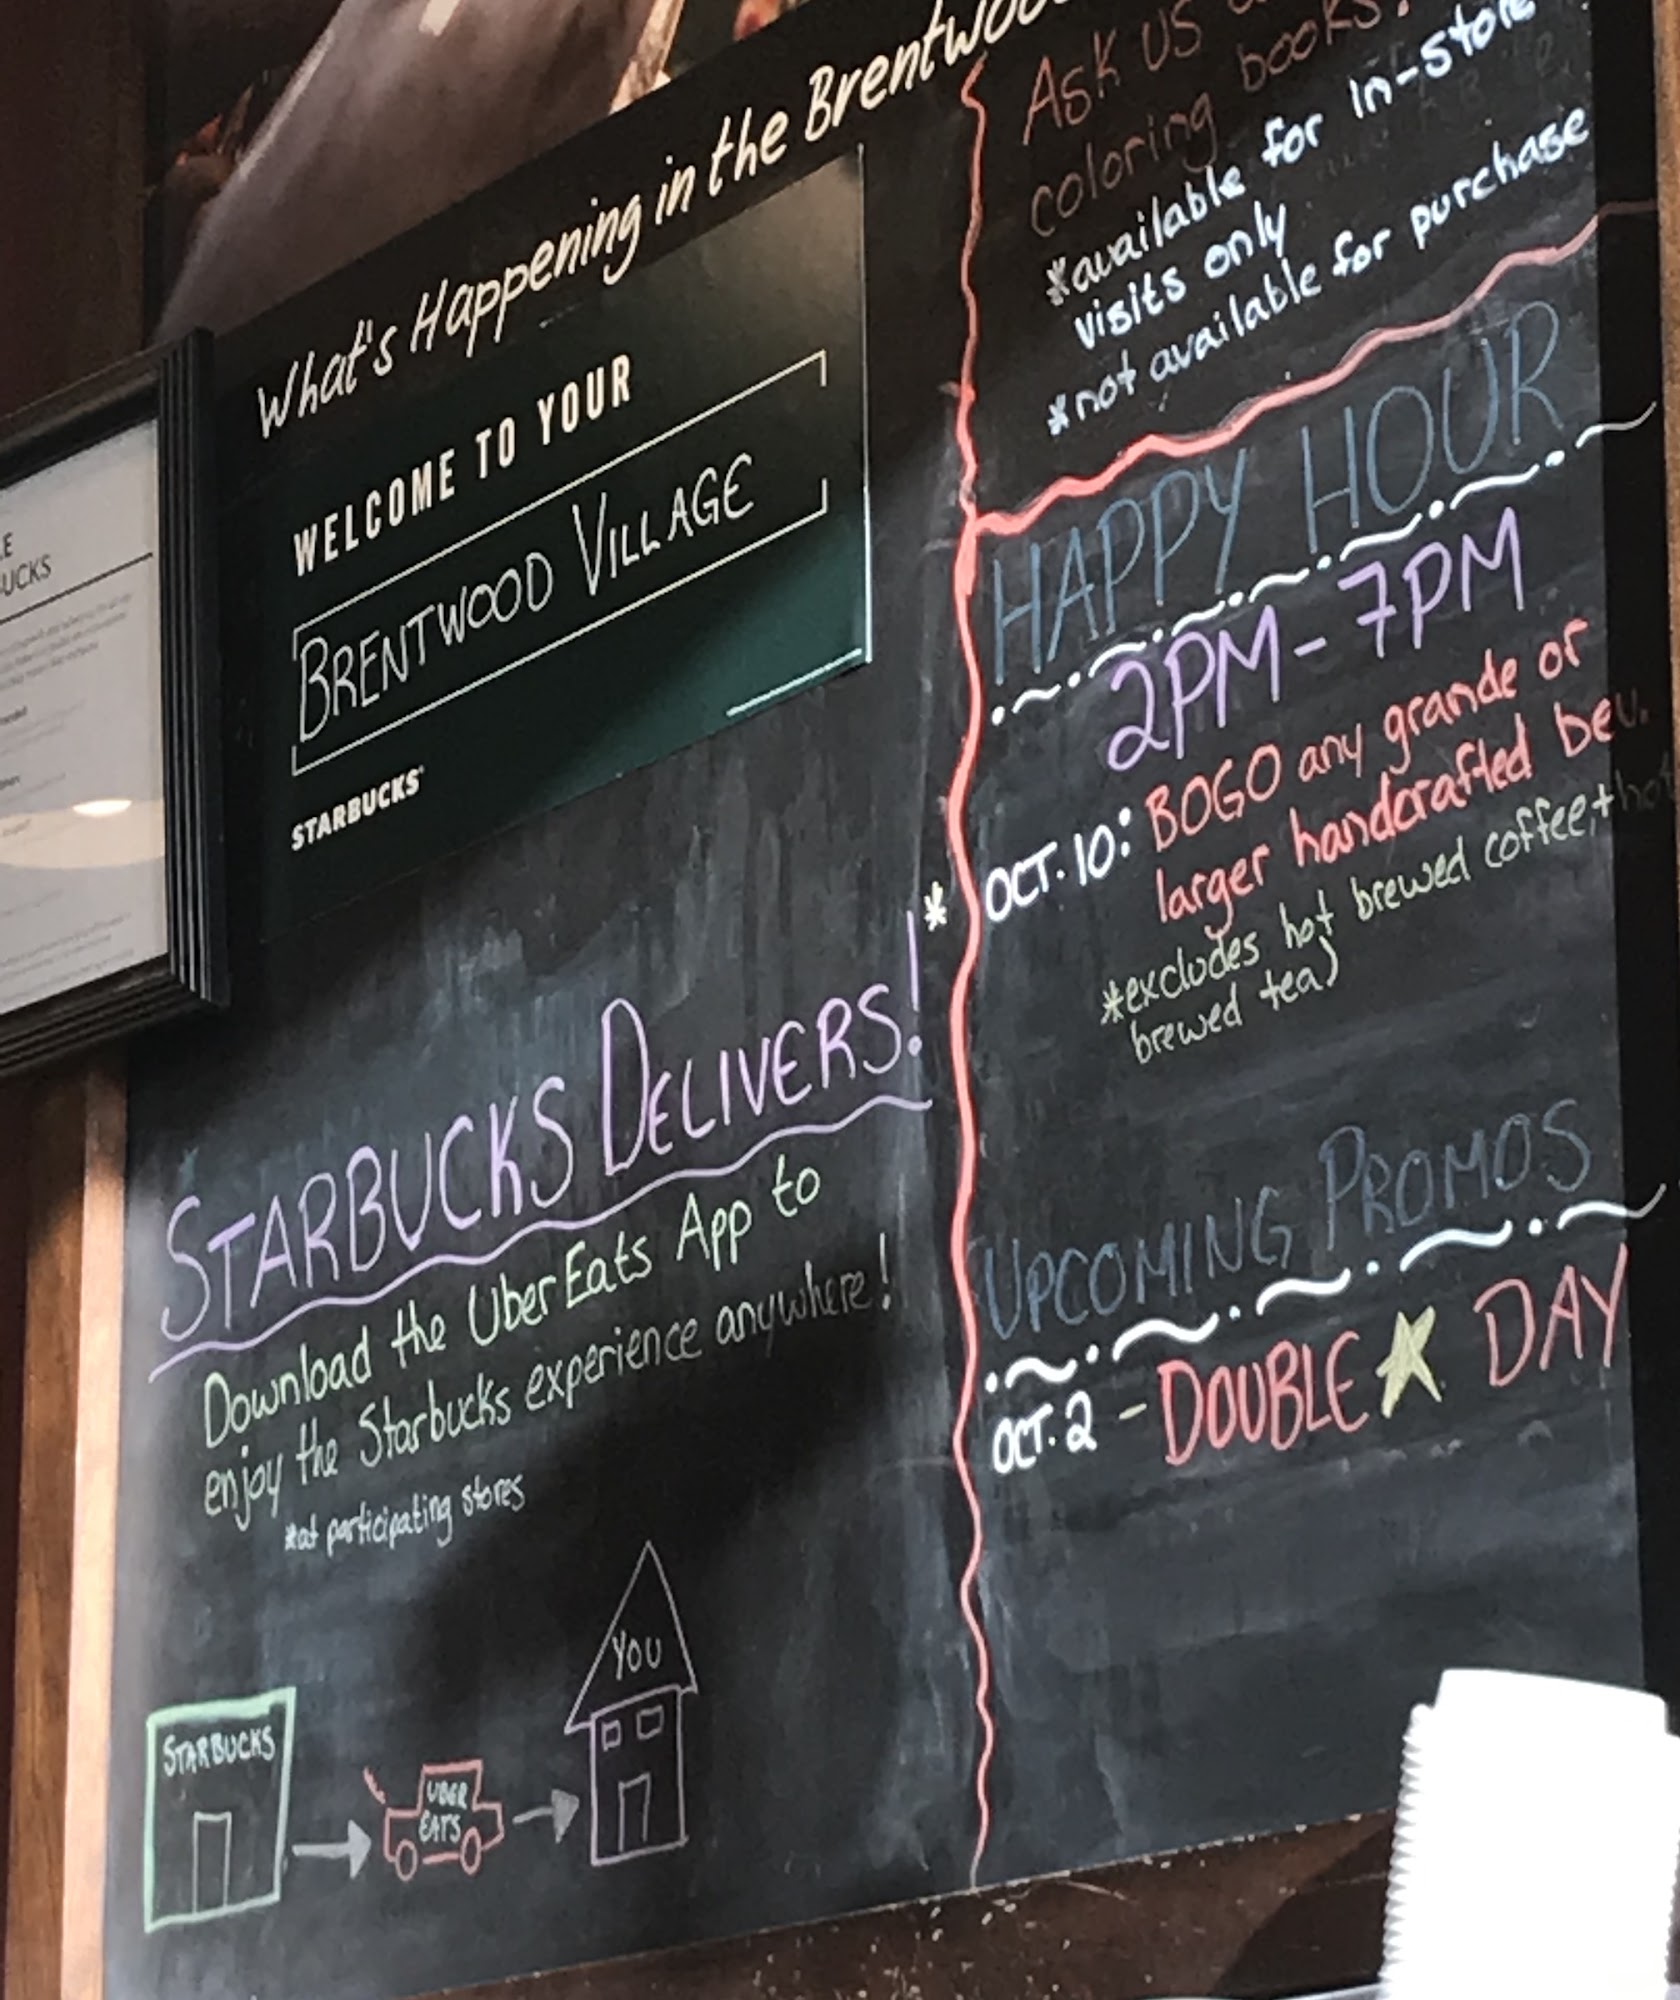 What's Happening in the Brentwood
WELCOME TO YOUR
BRENTWOOD VILLAGE
STARBUCKS
UCKS
STARBUCKS DELIVERS!
Download the UberEats App to
enjoy the Starbucks experience anywhere!
*at participating stores
STARBUCKS
UBER
EATS
YOU
ASK US
coloring books!
*available for in-store
visits only
*not available for purchase
HAPPY HOUR
2PM-7PM
* OCT. 10: BOGO any grande or
larger handcrafted bev.
*excludes hot brewed coffee, + hot
brewed tea)
UPCOMING PROMOS
OCT. 2 - DOUBLE ★ DAY